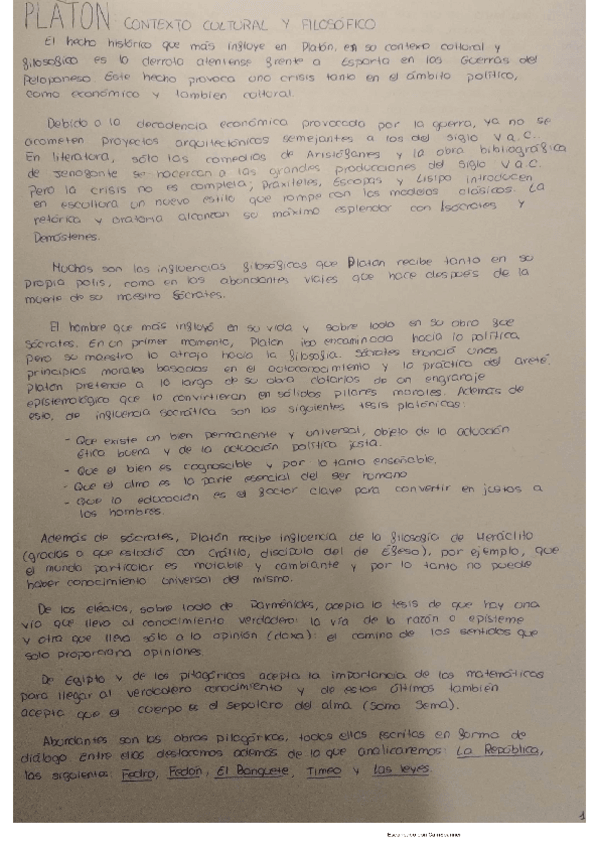 PLATÓN CONTEXTO CULTURAL Y FILOSÓFICO
El hecho histórico que más influye en Platón, en su contexto cultural y
filosófico es la derrota ateniense frente a Esparta en las Guerras del
Peloponeso. Este hecho provoca una crisis tanto en el ámbito político,
como económico y también cultural.
Debido a la decadencia económica provocada por la guerra, ya no se
acometen proyectos arquitectónicos semejantes a los del siglo V a.C.
En literatura, sólo las comedias de Aristófanes y la obra bibliográfica
de Jenofonte se acercan a las grandes producciones del siglo V a.C.
Pero la crisis no es completa; Práxiteles, Escopas y Lisipo introducen
en escultura un nuevo estilo que rompe con los modelos clásicos. La
retórica y oratoria alcanzan su máximo esplendor con Isócrates y
Demóstenes.
Muchas son las influencias filosóficas que Platón recibe tanto en su
propia polis, como en los abundantes viajes que hace después de la
muerte de su maestro Sócrates.
El hombre que más influyó en su vida y sobre todo en su obra fue
Sócrates. En un primer momento, Platón iba encaminado hacia la política
pero su maestro lo atrajo hacia la filosofía. Sócrates enunció unos
principios morales basados en el autoconocimiento y la práctica del areté.
Platón pretende a lo largo de su obra dotarlos de un engranaje
epistemológico que lo convirtieran en sólidos pilares morales. Además de
esto, de influencia socrática son las siguientes tesis platónicas:
- Que existe un bien permanente y universal, objeto de la actuación
ético buena y de la actuación política justa.
- Que el bien es cognoscible y por lo tanto enseñable.
- Que el alma es la parte esencial del ser humano
- Que la educación es el factor clave para convertir en justos a
los hombres.
Además de Sócrates, Platón recibe influencia de la filosofía de Heráclito
(gracias a que estudió con Crátilo, discípulo del de Éfeso), por ejemplo, que
el mundo particular es mutable y cambiante y por lo tanto no puede
haber conocimiento universal del mismo.
De los eléatas, sobre todo de Parménides, acepta la tesis de que hay una
vía que lleva al conocimiento verdadero: la vía de la razón o episteme
y otra que lleva sólo a la opinión (doxa): el camino de los sentidos que
solo proporciona opiniones.
De Egipto y de los pitagóricos acepta la importancia de las matemáticas
para llegar al verdadero conocimiento y de estos últimos también
acepta que el cuerpo es el sepulcro del alma (Soma Sema).
Abundantes son las obras pitagóricas, todas ellas escritas en forma de
diálogo. Entre ellas destacamos además de la que analizaremos: La República,
las siguientes: Fedro, Fedón, El Banquete, Timeo y Las leyes.
1